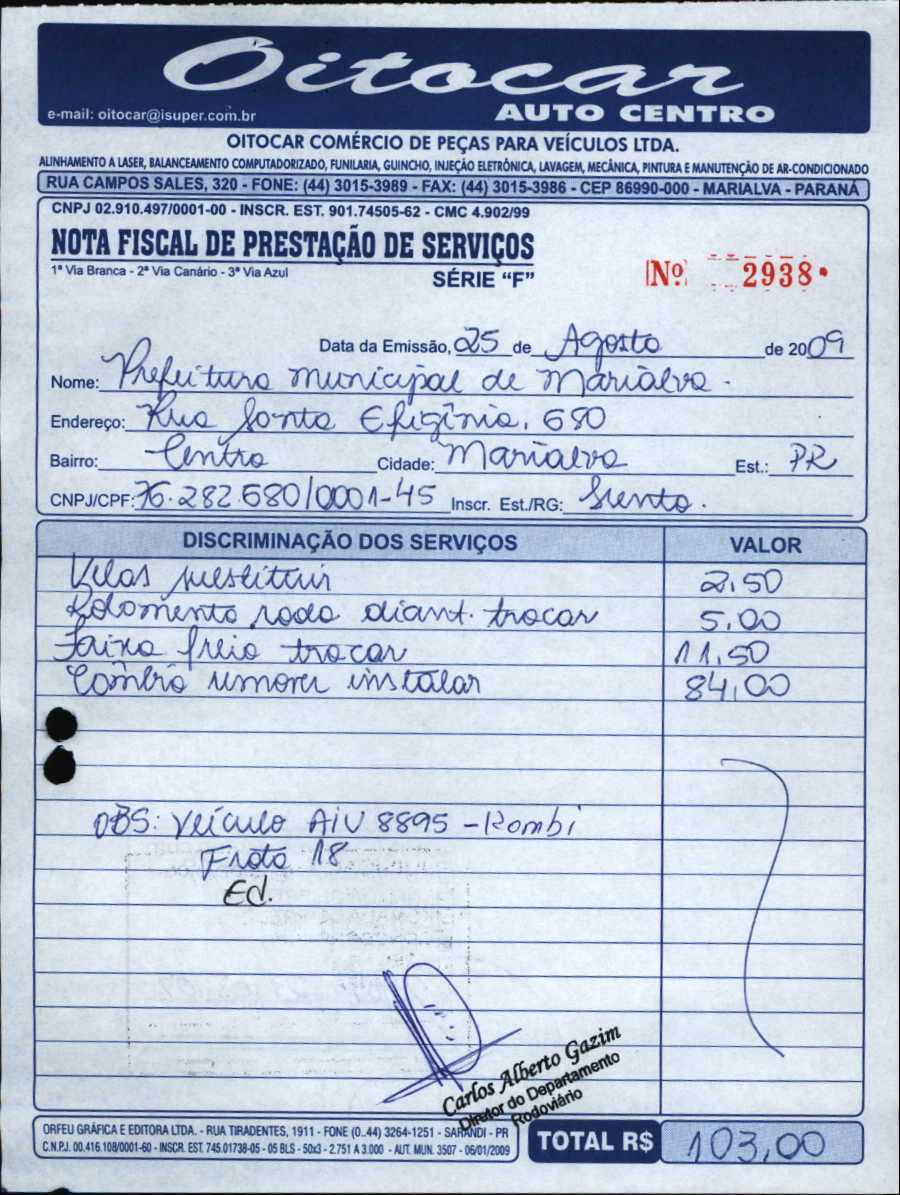 Oitocar
AUTO CENTRO
e-mail: oitocar@isuper.com.br
OITOCAR COMÉRCIO DE PEÇAS PARA VEÍCULOS LTDA.
ALINHAMENTO A LASER, BALANCEAMENTO COMPUTADORIZADO, FUNILARIA, GUINCHO, INJEÇÃO ELETRÔNICA, LAVAGEM, MECÂNICA, PINTURA E MANUTENÇÃO DE AR-CONDICIONADO
RUA CAMPOS SALES, 320 - FONE: (44) 3015-3989 - FAX: (44) 3015-3986 - CEP 86990-000 - MARIALVA - PARANÁ
CNPJ 02.910.497/0001-00 - INSCR. EST. 901.74505-62 - CMC 4.902/99
NOTA FISCAL DE PRESTAÇÃO DE SERVIÇOS
1ª Via Branca - 2ª Via Canário - 3ª Via Azul
SÉRIE “F”
Nº 2938
Data da Emissão, 25 de Agosto de 2009
Nome: Prefeitura municipal de Marialva.
Endereço: Rua Santa Efigênia, 680
Bairro: Centro Cidade: Marialva Est.: PR
CNPJ/CPF: 76.282.680/0001-45 Inscr. Est./RG: Isento.
DISCRIMINAÇÃO DOS SERVIÇOS VALOR
Velas substituir 2,50
Rolamento roda diant. trocar 5,00
Faixa freio trocar 11,50
Câmbio remover instalar 84,00
OBS: Veículo AIU 8895 - Kombi
Frota 18
Ed.
Carlos Alberto Gazim
Diretor do Departamento
Rodoviário
ORFEU GRÁFICA E EDITORA LTDA. - RUA TIRADENTES, 1911 - FONE (0..44) 3264-1251 - SARANDI - PR
C.N.P.J. 00.416.108/0001-60 - INSCR. EST. 745.01738-05 - 05 BLS - 50x3 - 2.751 A 3.000 - AUT. MUN. 3507 - 06/01/2009
TOTAL R$ 103,00